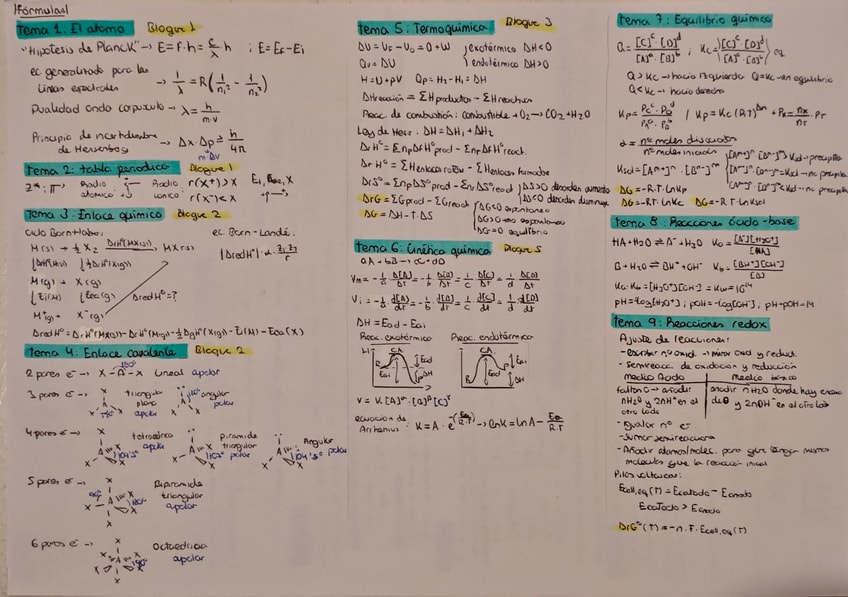 ¡Fórmulas!
Tema 1: El átomo Bloque 1
"Hipótesis de Planck" → E = f·h = c/λ h ; E = Ef - Ei
ec generalizada para las líneas espectrales → 1/λ = R(1/n₁² - 1/n₂²)
Dualidad onda corpúsculo → λ = h/m·v
Principio de incertidumbre de Heisenberg → Δx·Δp ≥ h/4π
m·Δv
Tema 2: tabla periódica Bloque 1
Radio atómico
Radio iónico r(x⁺) > x
r(x⁻) < x
Tema 3: Enlace químico Bloque 2
Ciclo Born-Haber:
ec. Born-Landé:
M(s) + ½ X₂ → MX(s)
M(g) + X(g)
M⁺(g) + X⁻(g)
ΔredH° = ?
Tema 4: Enlace covalente Bloque 2
2 pares e⁻ → X-A-X Lineal apolar
180º
3 pares e⁻ → triangular plana apolar
angular polar
4 pares e⁻ → tetraédrica apolar
Pirámide triangular polar
Angular polar
5 pares e⁻ → Bipirámide triangular apolar
6 pares e⁻ → Octaédrica apolar
Tema 5: Termoquímica Bloque 3
ΔU = UF - U0 = Q + W
exotérmico ΔH<0
endotérmico ΔH>0
Qv = ΔU
H = U + pV Qp = H₂ - H₁ = ΔH
ΔHreacción = ΣHproductos - ΣHreactivos
Reac. de combustión: combustible + O₂ → CO₂ + H₂O
Ley de Hess: ΔH = ΔH₁ + ΔH₂
ΔrH° = ΣnpΔfH°prod - ΣnpΔfH°react.
ΔrH° = ΣHenlaces rotos - ΣHenlaces formados
ΔrS° = ΣnpΔS°prod - ΣnrΔS°reac
ΔS>0 desorden aumenta
ΔS<0 desorden disminuye
ΔrG = ΣGprod - ΣGreac
ΔG = ΔH - T·ΔS
ΔG<0 espontáneo
ΔG>0 no espontáneo
ΔG=0 equilibrio
Tema 6: Cinética química Bloque 5
aA + bB → cC + dD
Vm = -1/a Δ[A]/Δt = -1/b Δ[B]/Δt = 1/c Δ[C]/Δt = 1/d Δ[D]/Δt
Vi = -1/a d[A]/dt = -1/b d[B]/dt = 1/c d[C]/dt = 1/d d[D]/dt
ΔH = Ead - Eai
Reac. exotérmica Reac. endotérmica
V = K [A]^α · [B]^β [C]^γ
ecuación de Arrhenius: K = A · e^-(Ea/R·T) → ln K = ln A - Ea/R·T
Tema 7: Equilibrio químico
Q = [C]^c · [D]^d / [A]^a · [B]^b ; Kc = ([C]^c · [D]^d / [A]^a · [B]^b) eq
Q > Kc → hacia izquierda Q = Kc → en equilibrio
Q < Kc → hacia derecha
/ Kp = Kc (R·T)^Δn
α = nº moles disociados / nº moles iniciales
ΔG = -R·T·lnKp
ΔG = -R·T·lnKc ΔG = -R·T·lnKsol
Tema 8: Reacciones ácido-base
HA + H₂O ⇌ A⁻ + H₃O Ka = [A⁻][H₃O⁺]/[HA]
B + H₂O ⇌ BH⁺ + OH⁻ Kb = [BH⁺][OH⁻]/[B]
Ka·Kb = [H₃O⁺][OH⁻] = Kw = 10⁻¹⁴
pH = -log[H₃O⁺] ; pOH = -log[OH⁻] ; pH + pOH = 14
Tema 9: Reacciones redox
Ajuste de reacciones:
- Escribir nº oxid. → mirar oxid y reduct.
- Semireacc de oxidación y reducción
Medio Ácido Medio básico
faltan O → añadir nH₂O y 2nH⁺ en el otro lado
añadir nH₂O donde hay exceso de O y 2nOH⁻ en el otro lado
- Igualar nº e⁻
- Sumar semireacciones
- Añadir átomos/molec. para que tengan mismas moléculas que la reacción inicial
Pilas voltaicas:
Ecell,eq(T) = Ecátodo - Eánodo
Ecátodo > Eánodo
ΔrG°(T) = -n·F·Ecell,eq(T)